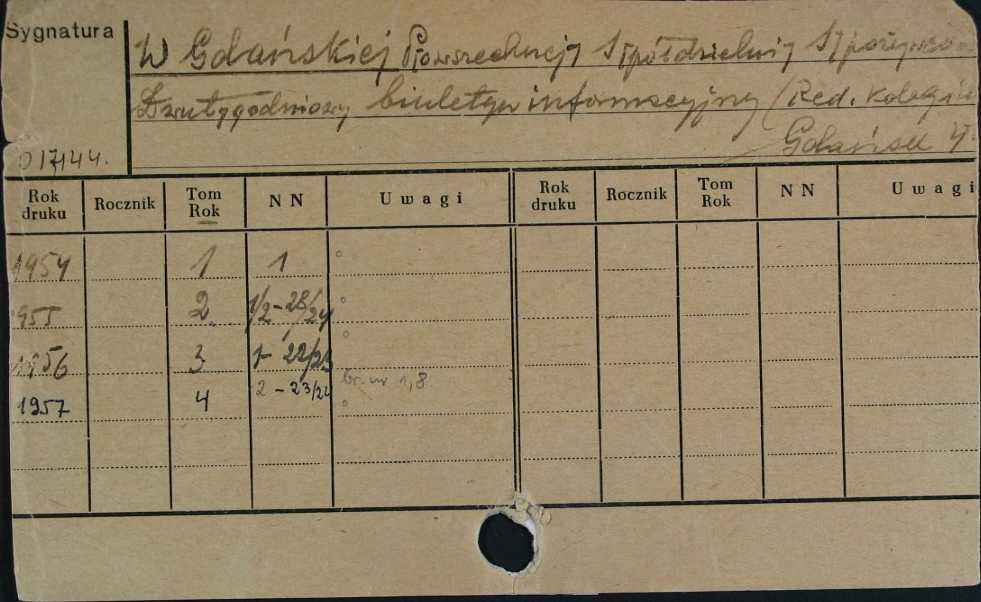 Sygnatura
W Gdańskiej Powszechnej Spółdzielni Spożywców
Dwutygodniowy biuletyn informacyjny (Red. Kolegium
Gdańsk 4°.
017144.
Rok druku Rocznik Tom Rok NN Uwagi Rok druku Rocznik Tom Rok NN Uwagi
1954 1 1 °
1955 2 1/2-23/24 °
1956 3 1-22/23 °
1957 4 2-23/24 br. nr 1,8 °